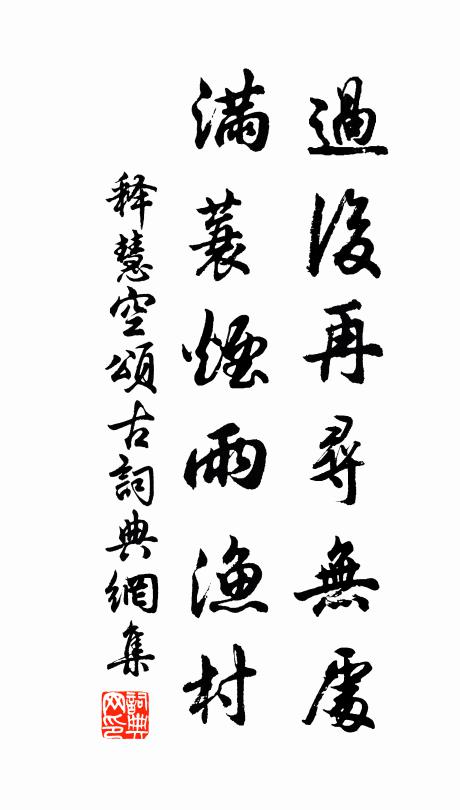 過後再尋無處
滿蓑煙雨漁村
释慧空頌古詞典網集
詞典
网印